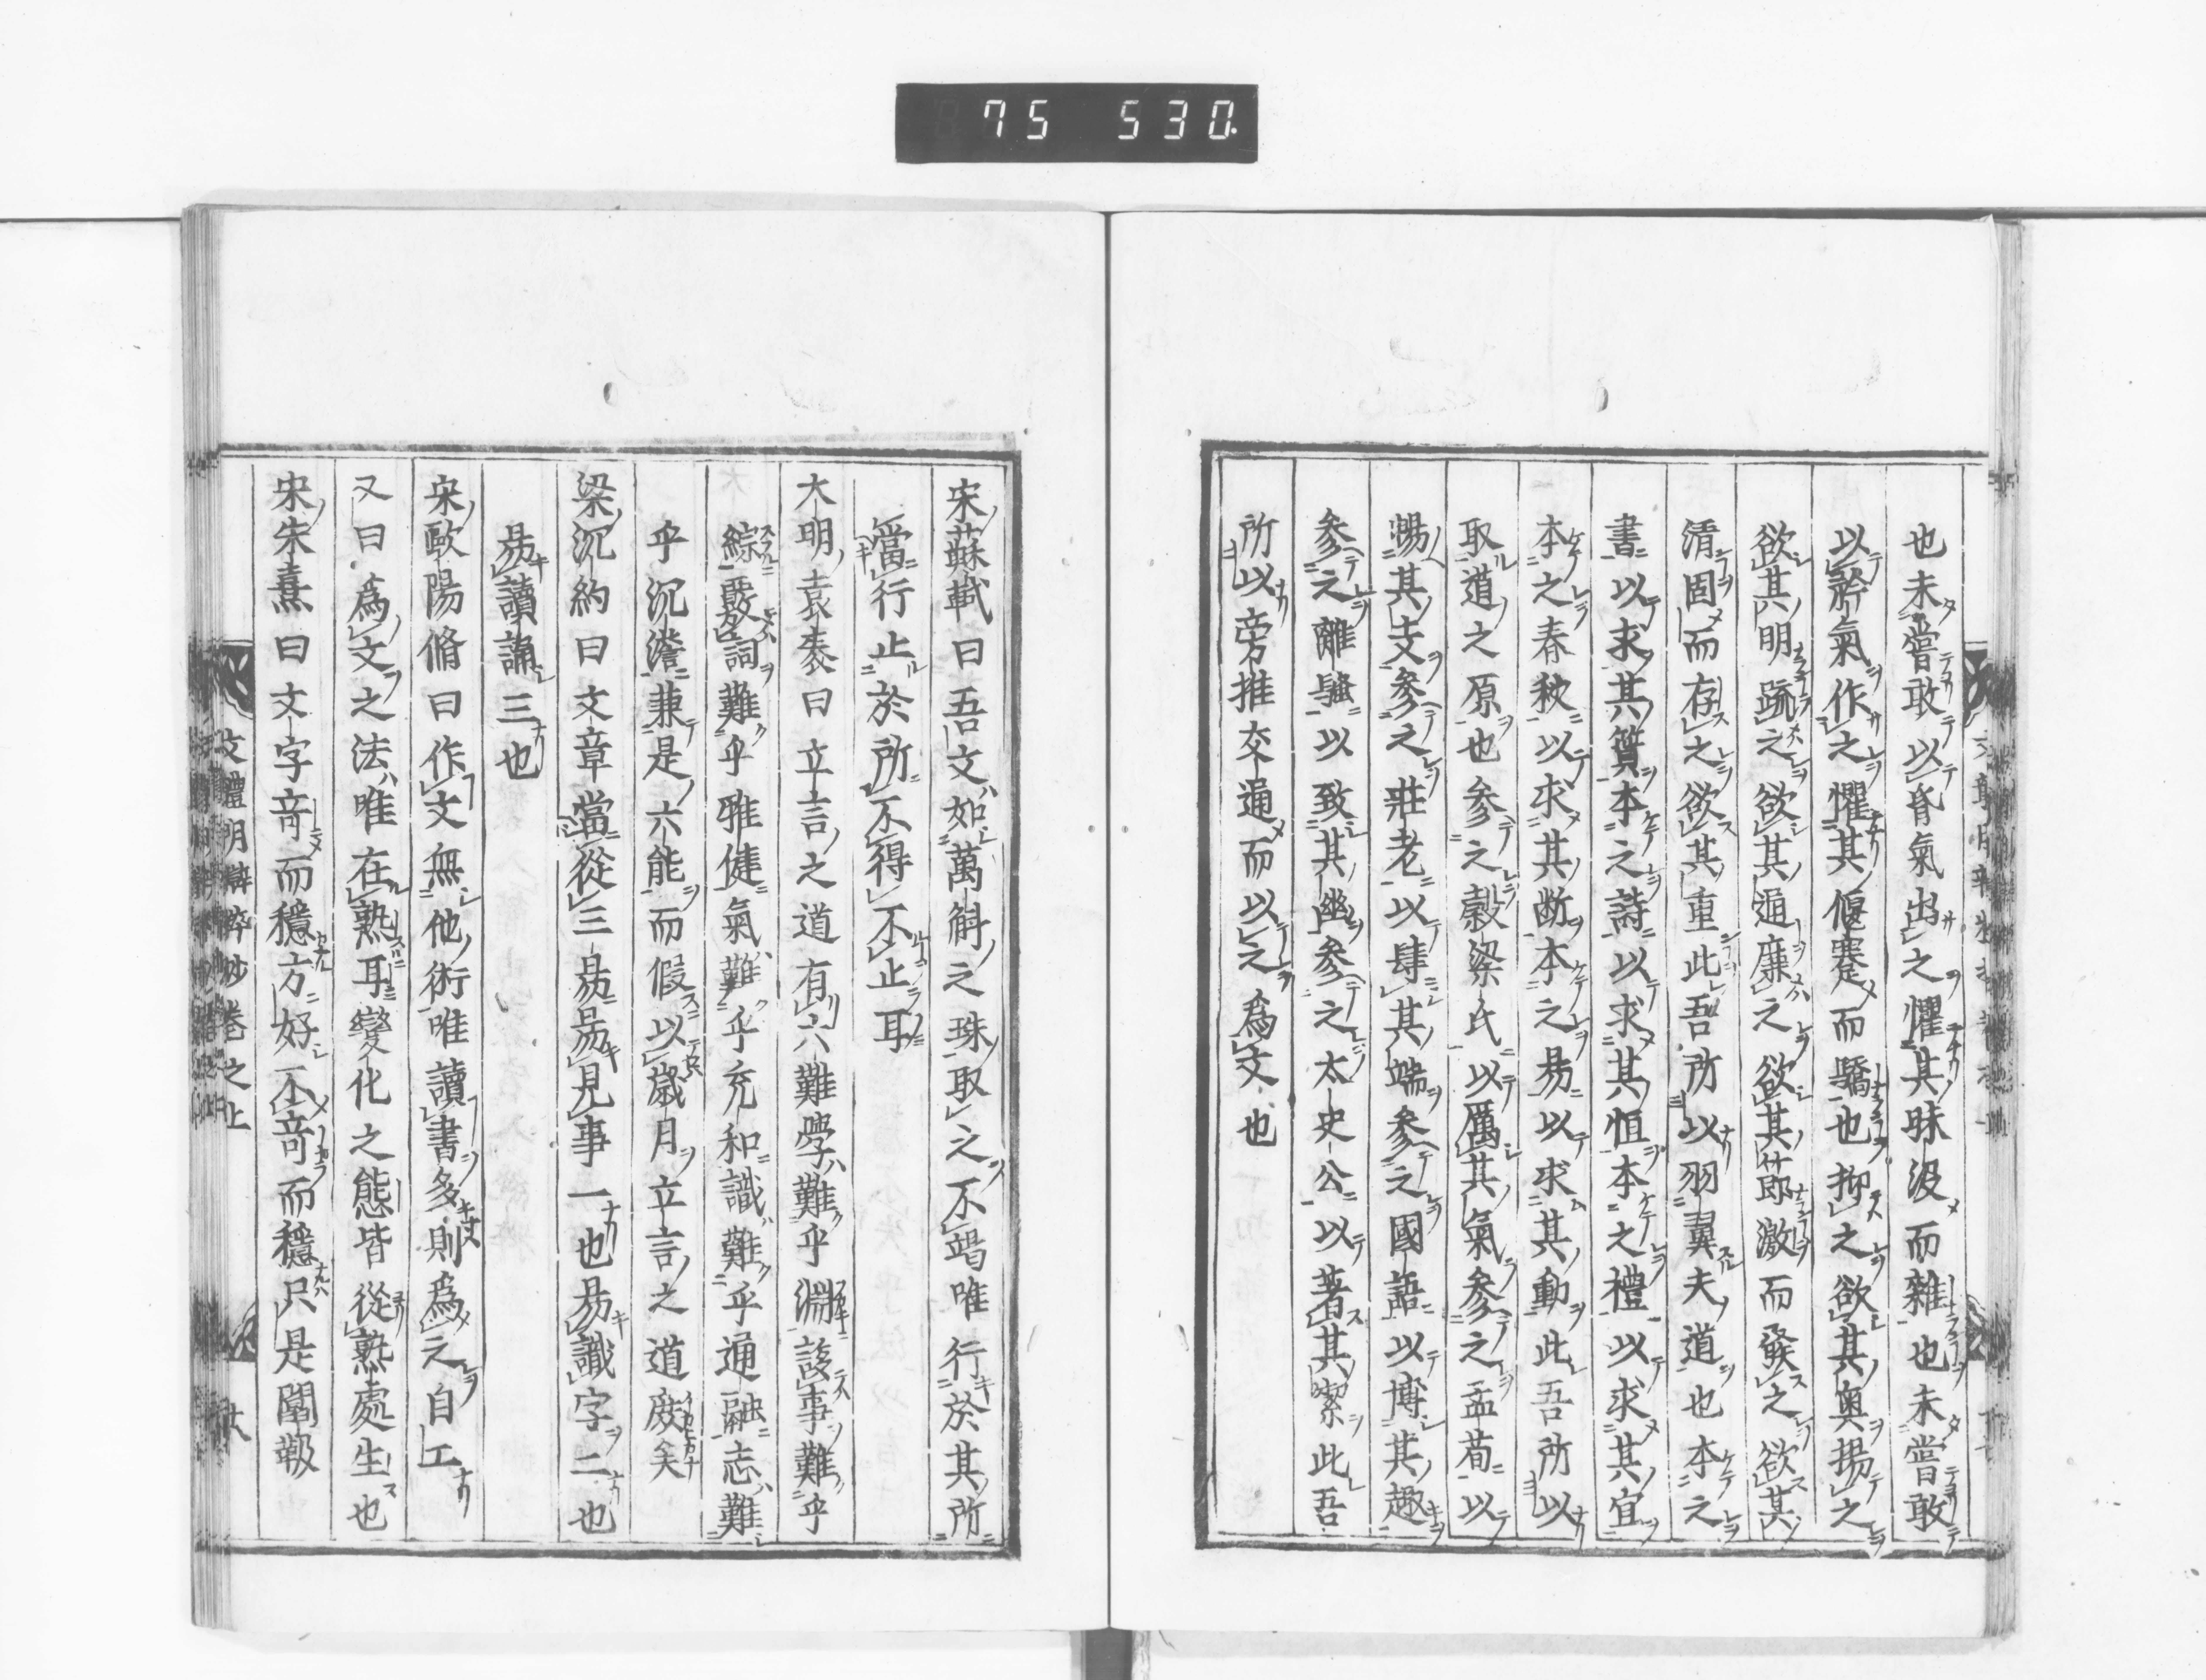 75 530.
也未嘗敢以昏氣出之懼其昧沒而雜也未嘗敢
以矜氣作之懼其偃蹇而驕也抑之欲其奧揚之
欲其明疏之欲其通廉之欲其節激而發之欲其
清固而存之欲其重此吾所以羽翼夫道也本之
書以求其質本之詩以求其恒本之禮以求其宜
本之春秋以求其断本之易以求其動此吾所以
取道之原也参之穀梁氏以厲其氣参之孟荀以
暢其支参之莊老以肆其端参之國語以博其趣
参之離騒以致其幽参之太史公以著其潔此吾
所以旁推交通而以之為文也
宋蘇軾曰吾文如萬斛之珠取之不竭唯行於其所
當行止於所不得不止耳
大明袁袠曰立言之道有六難學難乎淵該事難乎
綜覈詞難乎雅健氣難乎充和識難乎通融志難
乎沉澹兼是六能而假以歲月立言之道庶矣
梁沉約曰文章當從三易易見事一也易識字二也
易讀誦三也
宋歐陽脩曰作文無他術唯讀書多則為之自工
又曰為文之法唯在熟耳變化之態皆從熟處生也
宋朱熹曰文字竒而穩方好不竒而穩只是闒靸
文體明辯粹抄卷之上
十八